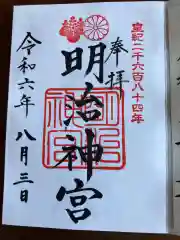 皇紀二千六百八十四年
奉拝
明治神宮
令和六年八月三日